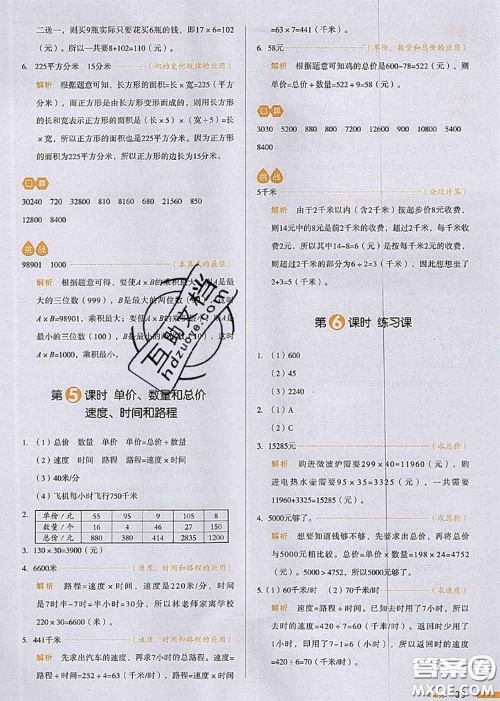 二送一，则买9瓶实际只要花买6瓶的钱，即17×6=102
（元），所以一共要8+102=110（元）。
6. 225平方分米 15分米（积的变化规律的应用）
解析 根据题意可知，长方形的面积=长×宽=225（平方分
米），而正方形是由长方形变形而成的，则用长方形
的长和宽表示正方形的面积是（长×5）×（宽÷5）=长
×宽，所以正方形的面积也是225平方分米。因为正方
形的面积=边长×边长，225=15×15，所以正方形的边
长为15分米。
口算
30240 720 31680 21560 6820 850
12800 8400
挑战
98901 1000
解析 根据题意可得，要使A×B的乘积最大，A是最
大的三位数（999），B是最大的两位数（99），
A×B=98901，乘积最大；要使A×B的乘积最小，A是
最小的三位数（100），B是最小的两位数（10），
A×B=1000，乘积最小。
第5课时 单价、数量和总价
速度、时间和路程
1.（1）总价 数量 单价 单价=总价÷数量
（2）速度 时间 路程 路程=速度×时间
（3）40米/分
（4）飞机每小时飞行750千米
2. 单价/元 55 95 9 105 35
数量/个 16 4 46 27 150
总价/元 880 380 414 2835
3. 130×30=3900（元）
4. 6600米（速度、时间和路程的应用）
解析 路程=速度×时间，速度是220米/分，时间
是7时半-7时=半小时=30分，所以林老师家离学校
220×30=6600（米）。
5. 441千米（速度、时间和路程的应用）
解析 先求出汽车的速度，再求7小时的总路程。速度=
路程÷时间=252÷4=63（千米/时），路程=速度×时间
=63×7=441（千米）。
6. 58元（单价、数量和总价的应用）
解析 根据题意可知鸡的总价是600-78=522（元），则
单价=总价÷数量=522÷9=58（元）。
口算
3030 5200 1200 1280 3320 7200 5600
8400
挑战
5千米（分段计算）
解析 由于2千米以内（含2千米）按起步价8元收费，
则14元中的8元是前2千米收费，2千米后按每千米2元收
费，所以其中14-8=6（元）是按每千米2元收费，
2+3=5（千米）。
第6课时 练习课
1.（1）600
（2）45
（3）2240
2.（1）A
（2）C
3. 15285元（求总价）
解析 购进微波炉需要299×40=11960（元），购
进电热水壶需要95×35=3325（元），一共需要
11960+3325=15285（元）。
4. 5000元够了。（求总价）
解析 想要知道钱够不够，先求出总价，再将总价
与5000元相比较。总价=单价×数量=198×24=4752
（元），因为5000＞4752，所以5000元够了。
5.（1）60千米/时（2）70千米/时（求速度）
解析 （1）出发时用了7小时，所以出发时
的速度=420÷7=60（千米/时）。
（2）返回时用了6小时，所以返回时的速度
=420÷6=70（千米/时）。
互助文档
hdzuoye.com
答案圈
MXQE.COM